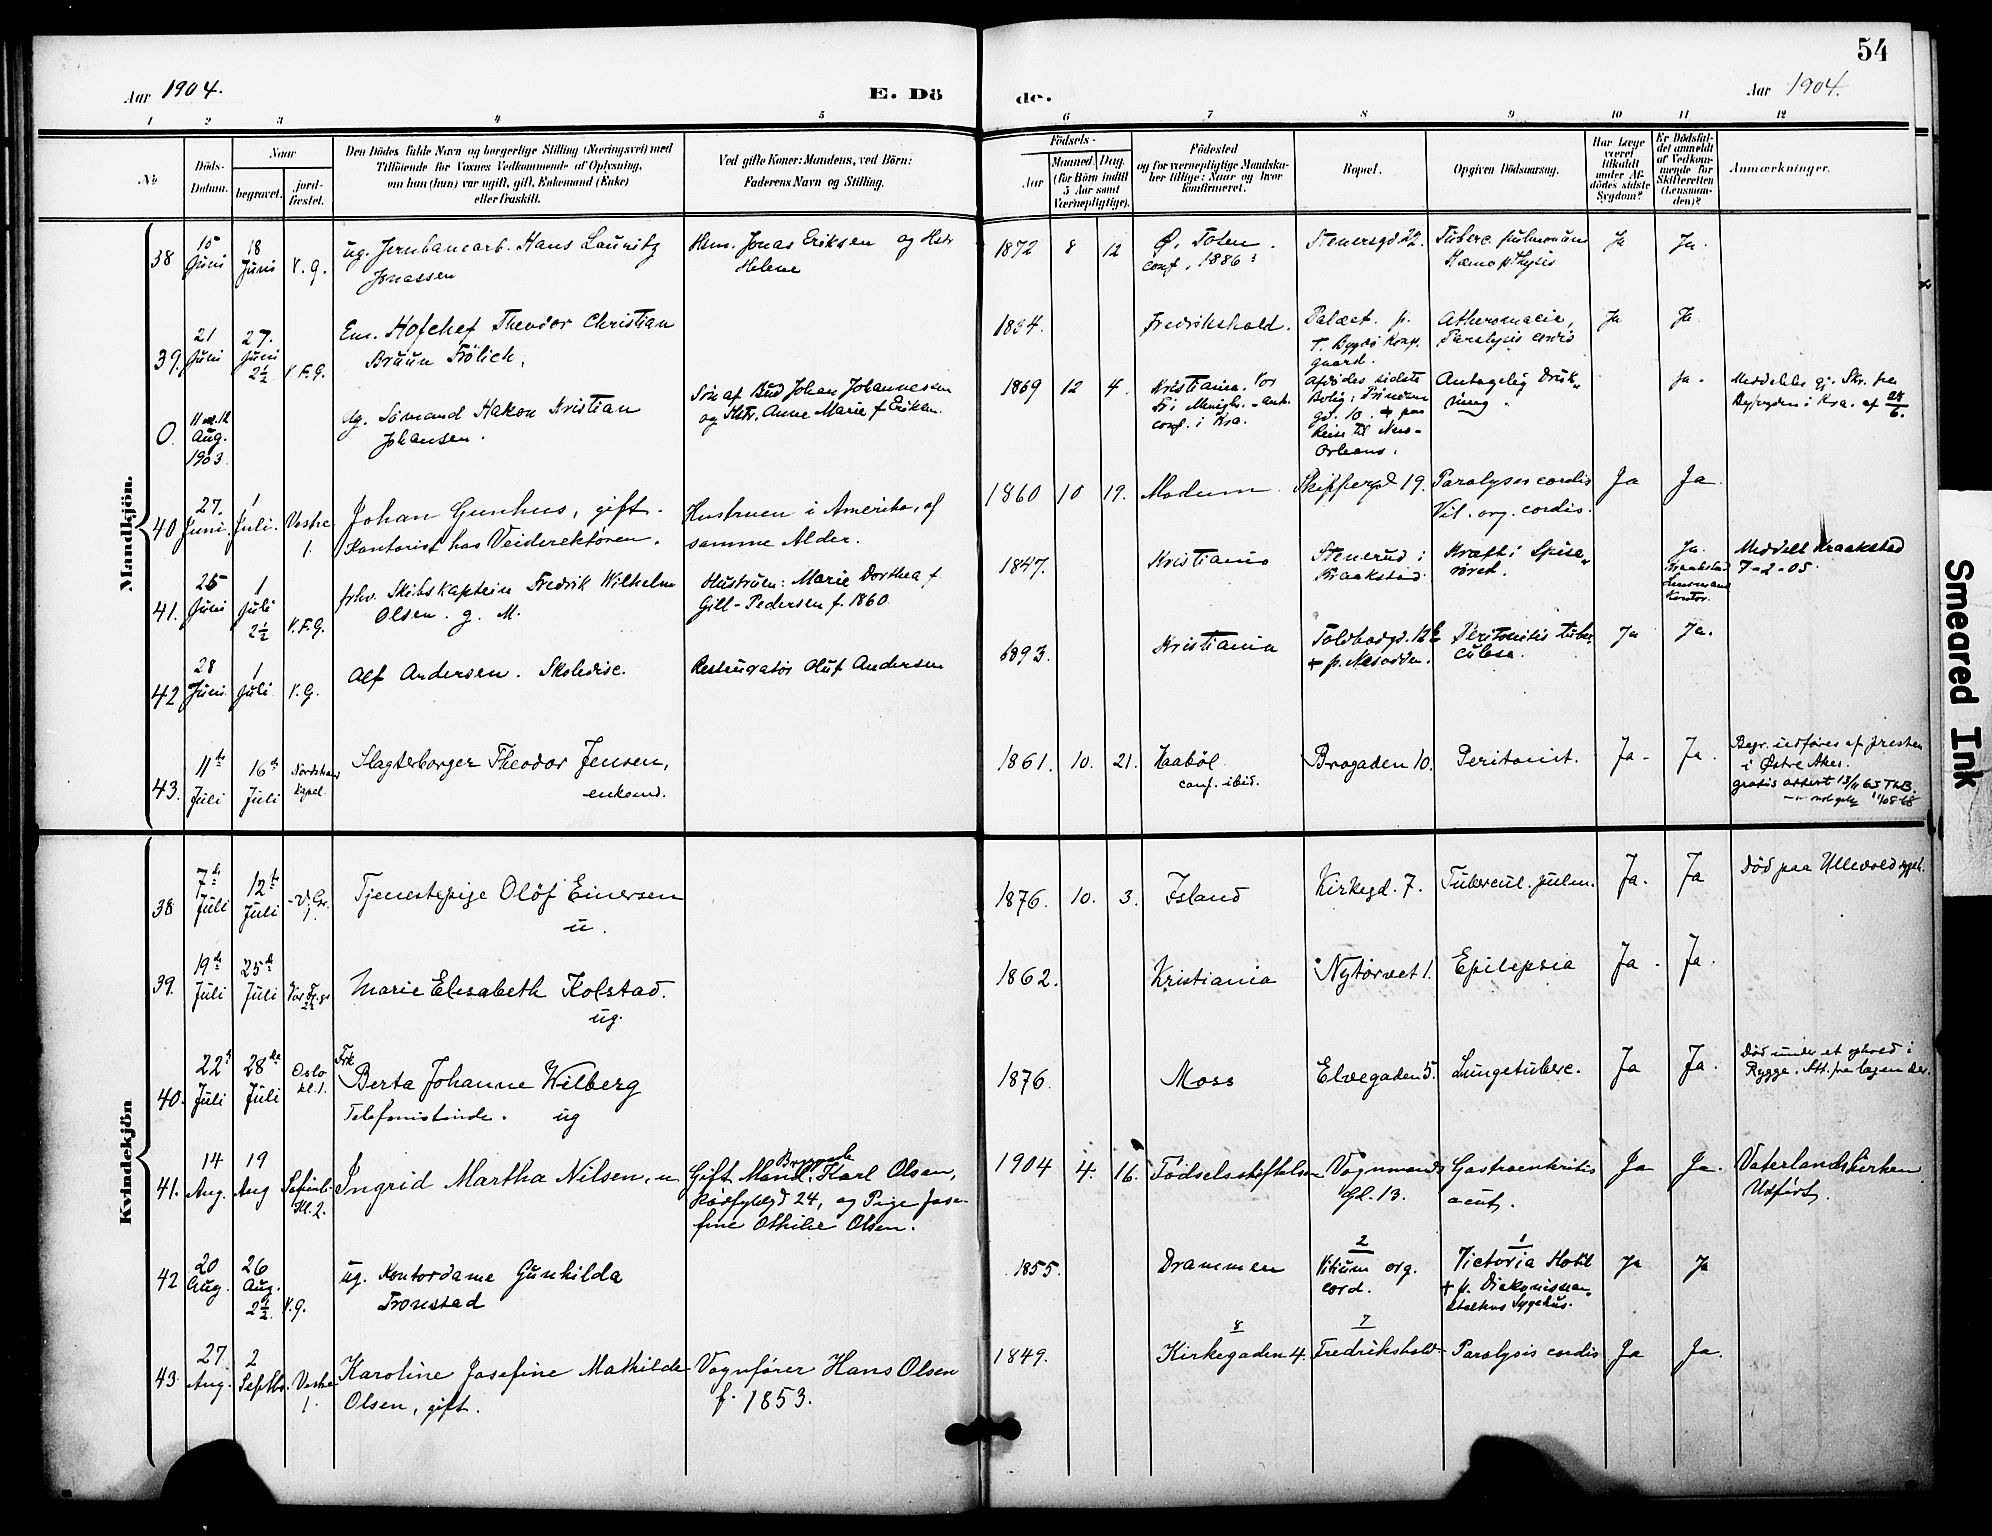 54
Aar 1904.
E. Dö
de.
Aar 1904.
1 2 3 4 5 6 7 8 9 10 11 12
No
Döds-
Datum.
Naar
begravet.
jord-
fæstet.
Den Dödes fulde Navn og borgerlige Stilling (Næringsvei) med
Tilföiende for Voxnes Vedkommende af Oplysning,
om han (hun) var ugift, gift, Enkemand (Enke)
eller fraskilt.
Ved gifte Koner: Mandens, ved Börn:
Faderens Navn og Stilling.
Födsels-
Aar
Maaned. Dag.
(for Börn indtil
5 Aar samt
Værnepligtige).
Födested
og for værnepligtige Mandska-
ber tillige: Naar og hvor
konfirmeret.
Bopæl.
Opgiven Dödsaarsag.
Har Læge
været
tilkaldt
under Af-
dödes sidste
Sygdom?
Er Dödsfal-
det anmeldt
af Vedkom-
mende for
Skifteretten
(Lensman-
den)?
Anmærkninger.
Mandkjön.
38
15
Juni
18
Juni
V. G.
ug. Jernbanearb. Hans Lauritz
Jonassen
Hsm. Jonas Eriksen og Hstr
Helene
1872 8 12
Ø. Toten.
conf. 1886
Stenersgd 22.
Tuberc. pulmonum
Hæmoptysis
Ja
Ja.
39.
21
Juni
27.
Juni
2½
V. F. G.
Em. Hofchef Theodor Christian
Bruun Frölich.
1834.
Fredrikshald.
Palæet. p.
t. Bygdö Kong.
gaard.
Atheromacia,
Paralysis cordis
Ja
Ja.
0.
11 el. 12
Aug.
1903.
Ug. Sömand Hakon Kristian
Johansen.
Søn af Bud Johan Johannessen
og Hstr. Anne Marie f. Eriksen.
1869 12 4.
Kristiania. Vor
Fr. Menigh.
conf. i Kra.
Afdödes sidste
Bolig:
gd. 10. + paa
Reise til New-
Orleans.
Antagelig Druk-
ning.
Ja.
Meddelt gj. Skr. fra
Byfogden i Kra. af 28/6.
40
27.
Juni.
1
Juli.
Vestre
1.
Johan Gunhus, gift.
Kontorist hos Veidirektören.
Hustruen i Amerika, af
samme Alder.
1860 10 19.
Modum.
Skippergd 19.
Paralyses cordis
Vit. org. cordis.
Ja
Ja.
41.
25
Juni
1
Juli
2½
V. F. G.
fhv. Skibskaptein Fredrik Wilhelm
Olsen. g. M.
Hustruen: Marie Dorthea f.
Gill-Pedersen f. 1860.
1847.
Kristiania
Stenerud i
Kraakstad.
Kræft i Spise-
röret.
Ja.
Kraakstad
Lensmans
Kontor.
Meddelt Kraakstad
7-2-05.
42
28
Juni.
1
Juli
V. G.
Alf Andersen. Skoledisc.
Restauratør Oluf Andersen
1893.
Kristiania
Toldbodgd. 12b
+ p. Nesodden.
Peritonitis tuber-
culosa.
Ja
Ja.
43.
11te
Juli
16de
Juli
Nordstrand
Kapel.
Slagterborger Theodor Jensen,
enkemd.
1861. 10. 21.
Haaböl
conf. ibid.
Brogaden 10.
Peritonit.
Ja.
Ja.
Begr. udföres af presten
i Østre Aker.
gratis attest 13/11 65
Kvindekjön
38
7de
Juli
12te
Juli
V. Gr.
1
Tjenestepige Olöf Einersen
u.
1876. 10. 3.
Island
Kirkegd. 7.
Tubercul. pulm.
Ja.
Ja
Död paa Ullevold sygeh.
39.
19de
Juli
25de
Juli
Vor Fr. gr.
Marie Elisabeth Kolstad.
ug.
1862.
Kristiania
Nytorvet 1.
Epilepsia
Ja.
Ja.
40.
22d
Juli
28de
Juli
Oslo
kl. 1.
Frk
Berta Johanne Wilberg
Telefonistinde. ug
1876.
Moss
Elvegaden 5.
Lungetuberc.
Ja
Ja.
Död under et ophold i
Rygge. Att. fra lægen der.
41.
14
Aug.
19
Aug
Sofienb.
Kl. 2.
Ingrid Martha Nilsen, u
Gift Mand, Karl Olsen,
24, og Pige Jose-
fine Othilie Olsen.
1904 4. 16.
Födselsstiftelsen
Vognmands
Gd. 13.
Gastroenteritis
acut.
Ja
Ja.
Vaterlandskirken
Udført.
42
20
Aug.
26
Aug.
2½
V. G.
ug. Kontordame Gunhilda
Tronstad
1855.
Drammen
2
Vitium org.
cord.
1
Victoria Hotel
+ p. Diakonissean-
staltens Sygehus.
Ja
Ja
43
27
Aug.
2
Septbr.
Vestre
1.
Karoline Josefine Mathilde
Olsen, gift.
Vognfører Hans Olsen
f. 1853.
1849.
8
Kirkegaden 4.
7
Fredrikshald
Paralysis cordis
Ja
Ja.
Smeared Ink